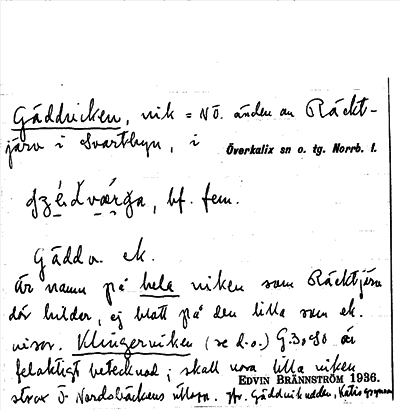 Gäddviken, vik = NÖ. änden av Räckt-
järv i Svartbyn, i Överkalix sn o. tg. Norrb. l.
bf. fem.
Gädda ek.
är namn på hela viken som Räcktjärv
där bildar, ej blott på den lilla som ek.
visar. Klingerviken (se d.o.) G.3 är
felaktigt betecknad; skall vara lilla viken
strax Ö Nordsbäckens utlopp. jfr. Gäddvikudden,
EDVIN BRÄNNSTRÖM 1936.